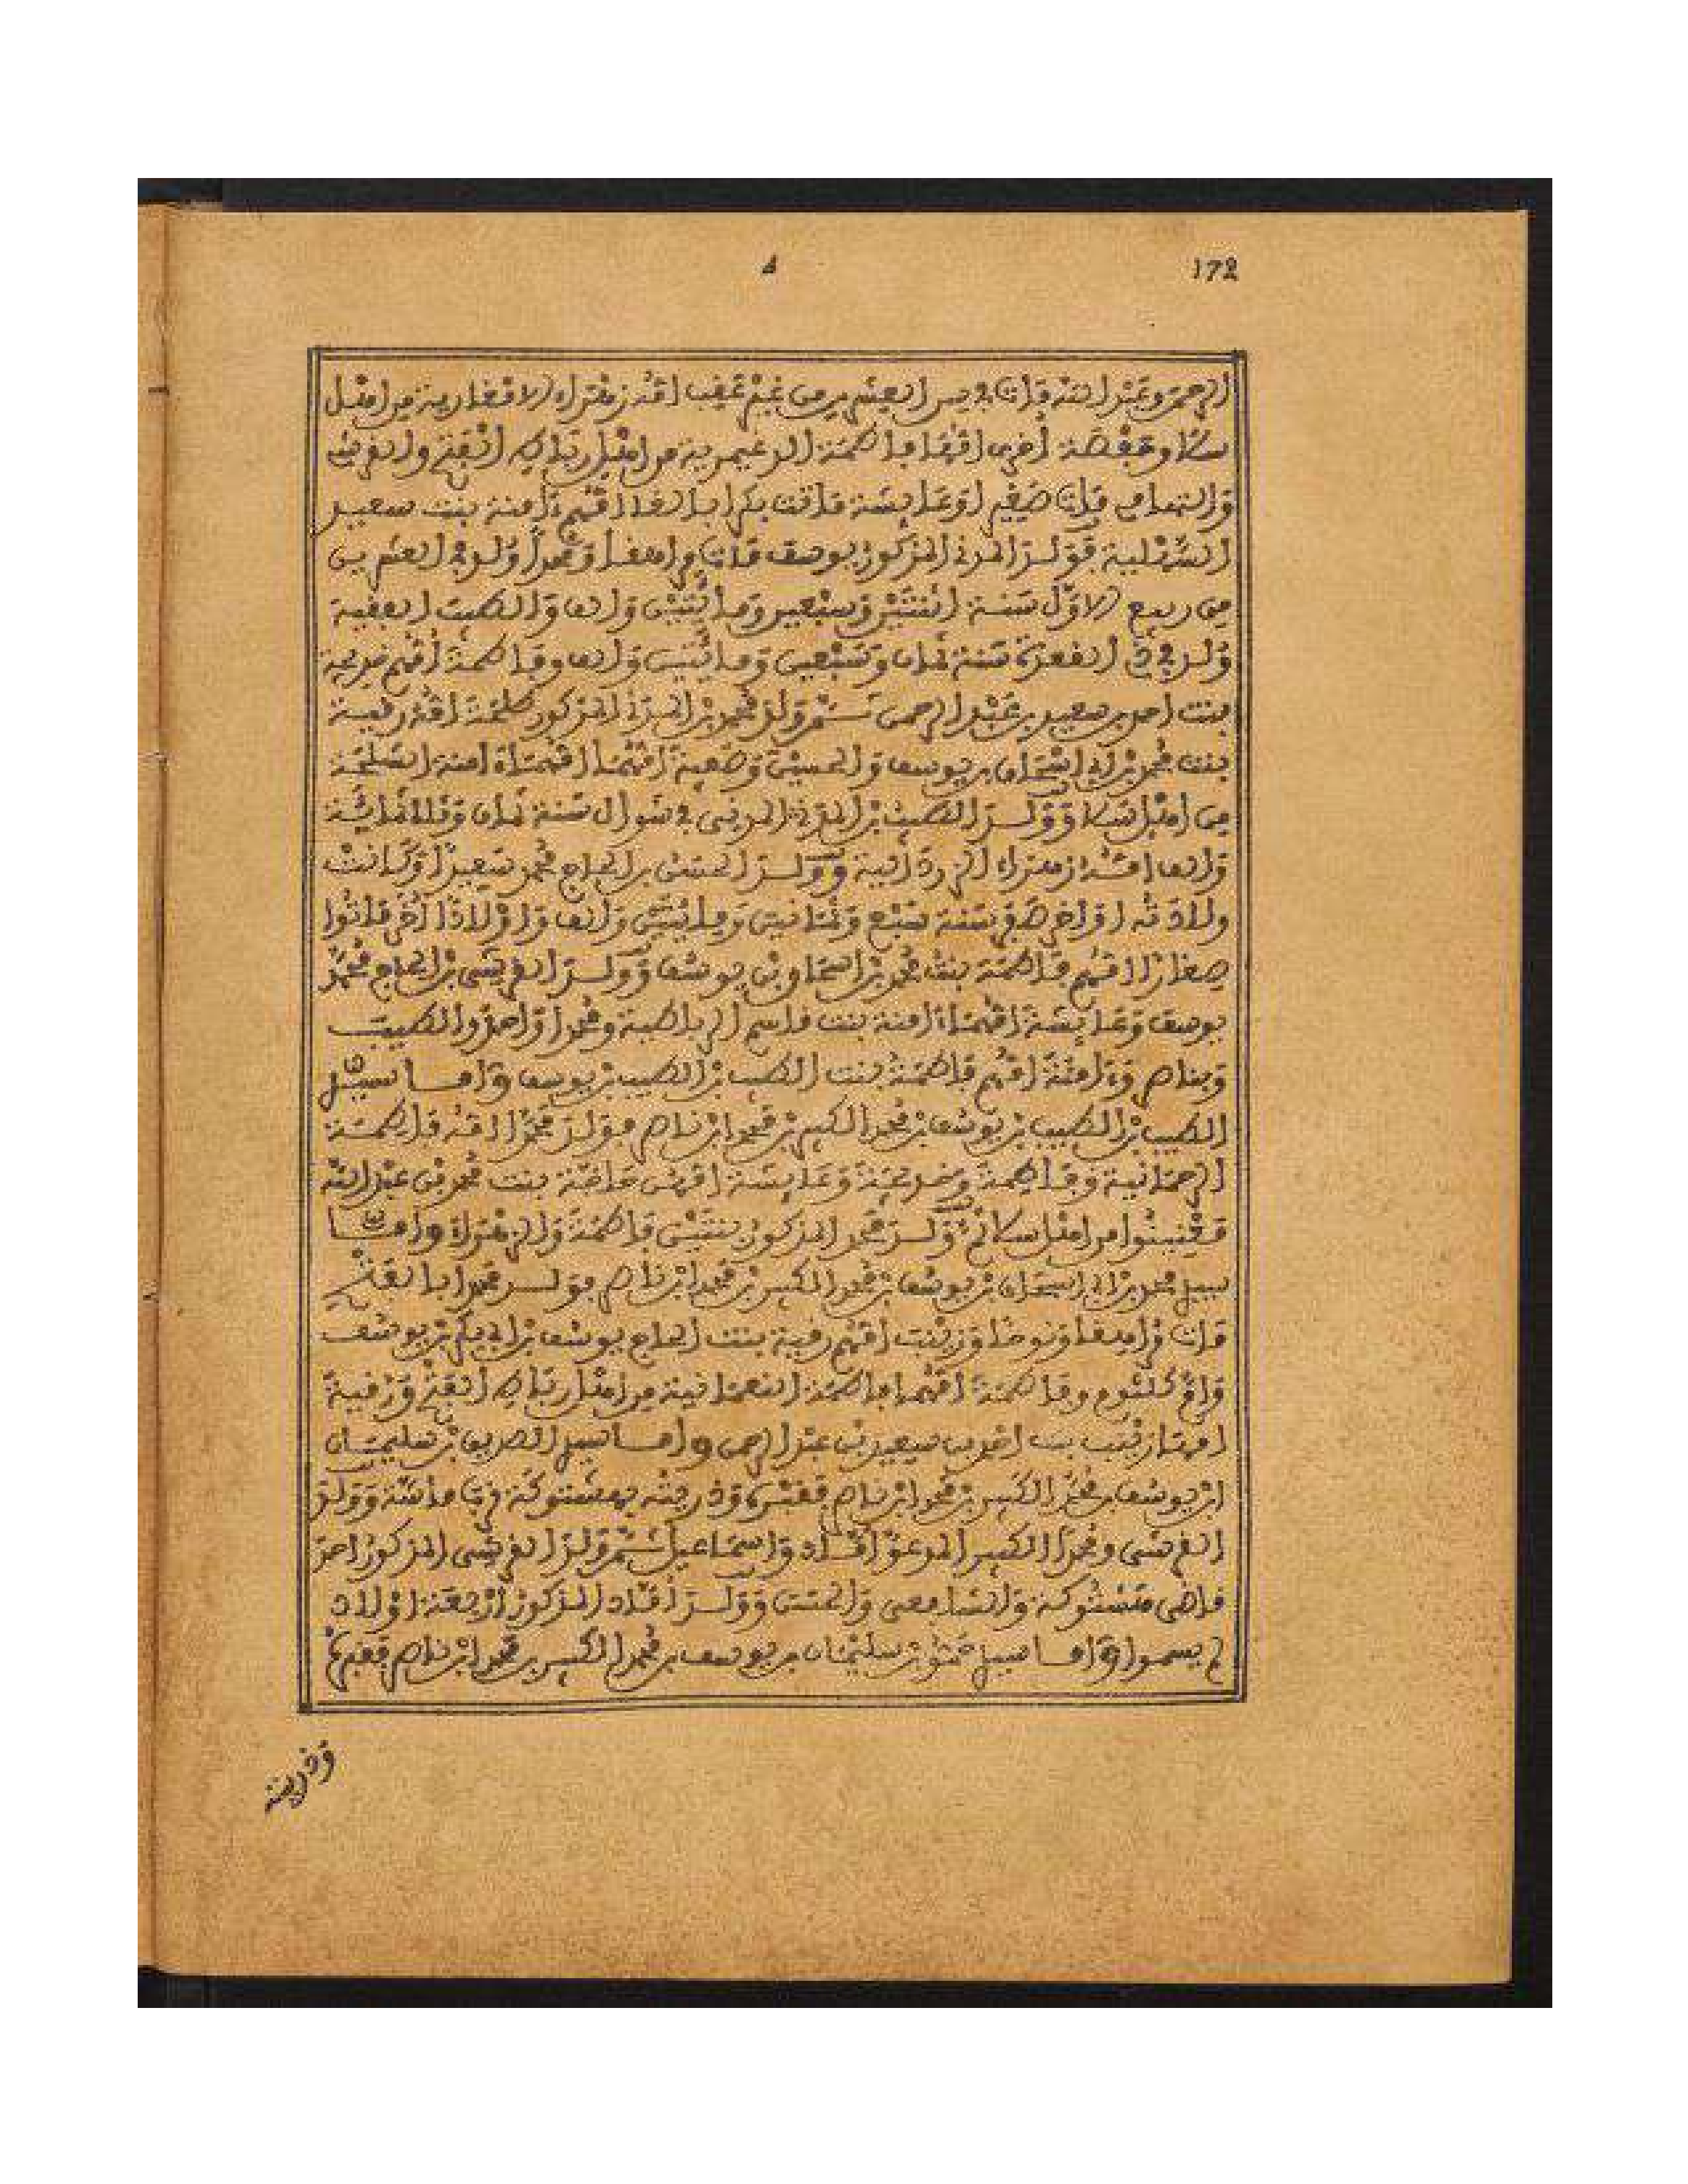 172
الرحمن وعبد الله مات في سن العشرين من غير عقب امه زهراء الامغارية من اهل
سلا وحفصة اخرى امها فاطمة الدغيمرية من اهل رباط الفتح والقرشي
والتهامي مات صغيرا وعايشة ماتت بكرا بالغا امهم ءامنة بنت سعيد
السلية فولد المدني المذكور يوسف مات مراهقا ومحمدا ولد في العشرين
من ربيع الاول سنة اثنتين وسبعين ومائتين والف والطيب الفقيه
ولد في ذي القعدة سنة ثمان وسبعين ومائتين والف وفاطمة امهم خديجة
بنت احمد بن سعيد بن عبد الرحمن ثم ولد محمد بن المدني المذكور فاطمة امه رقية
بنت محمد بن ابي اسحاق بن يوسف والحسين وصفية امهما امة ءامنة السلحة
من اهل سلا وولد الطيب بن المدني المدني في شوال سنة ثمان وثلاثمائة
والف امه زهراء الردانية وولد الحسن بن الحاج محمد سعيدا وكانت
ولادته اواخر صفر سنة سبع وثمانين ومائتين والف واولادا اخر ماتوا
صغارا امهم فاطمة بنت محمد بن اسحاق بن يوسف وولد القرشي بن الحاج محمد
يوسف وعايشة امهما ءامنة بنت قاسم الرباطية ومحمدا واحمد والطيب
وبناصر وءامنة امهم فاطمة بنت الطيب بن الطيب بن يوسف واما سيدي
الطيب بن الطيب بن يوسف بن محمد الكبير بن محمد ابن ناصر فولد محمدا امه فاطمة
الرحمانية وفاطمة وخديجة وعايشة امهن ءامنة بنت محمد بن عبد الله
فنيشوا من اهل سلا ثم ولد محمد المذكور بنتين فاطمة والزهراء واما
سيدي محمد بن ابي اسحاق بن يوسف بن محمد الكبير بن محمد ابن ناصر فولد محمدا بالفتح
مات مراهقا ونوحا وزينب امهم رقية بنت الحاج يوسف بن ابي بكر بن يوسف
وام كلثوم وفاطمة امهما فاطمة النعمانية من اهل رباط الفتح ورقية
امها زينب بنت احمد بن سعيد بن عبد الرحمن واما سيدي الصديق بن سليمان
ابن يوسف بن محمد الكبير بن محمد ابن ناصر فقبره وذريته بهشتوكة قرب ماسة وولد
القرشي ومحمدا الكبير المدعو امحاد واسماعيل ثم ولد القرشي المذكور احمد
قاضي هشتوكة والشافعي والحسن وولد امحاد المذكور اربعة اولاد
لم يسموا واما سيدي حمو بن سليمان بن يوسف بن محمد الكبير بن محمد ابن ناصر فقبره
وذريته